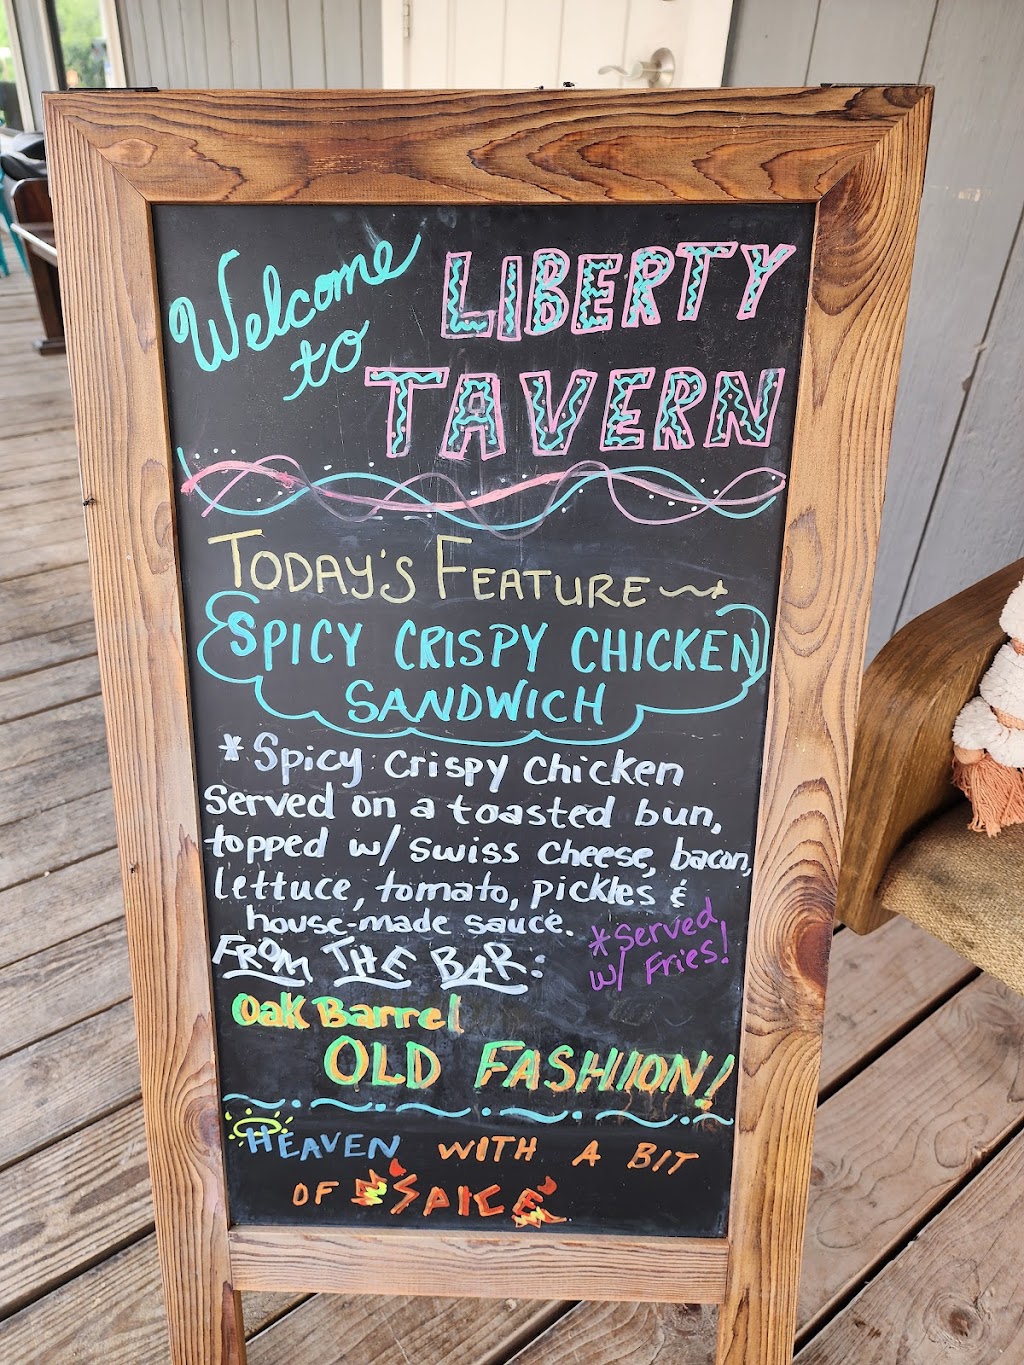 Welcome to LIBERTY
TAVERN
TODAY'S FEATURE
SPICY CRISPY CHICKEN
SANDWICH
*Spicy crispy chicken
served on a toasted bun,
topped w/ swiss cheese, bacon,
lettuce, tomato, pickles &
house-made sauce.
*Served
w/ Fries!
FROM THE BAR:
Oak Barrel
OLD FASHION!
HEAVEN WITH A BIT
OF SPICE